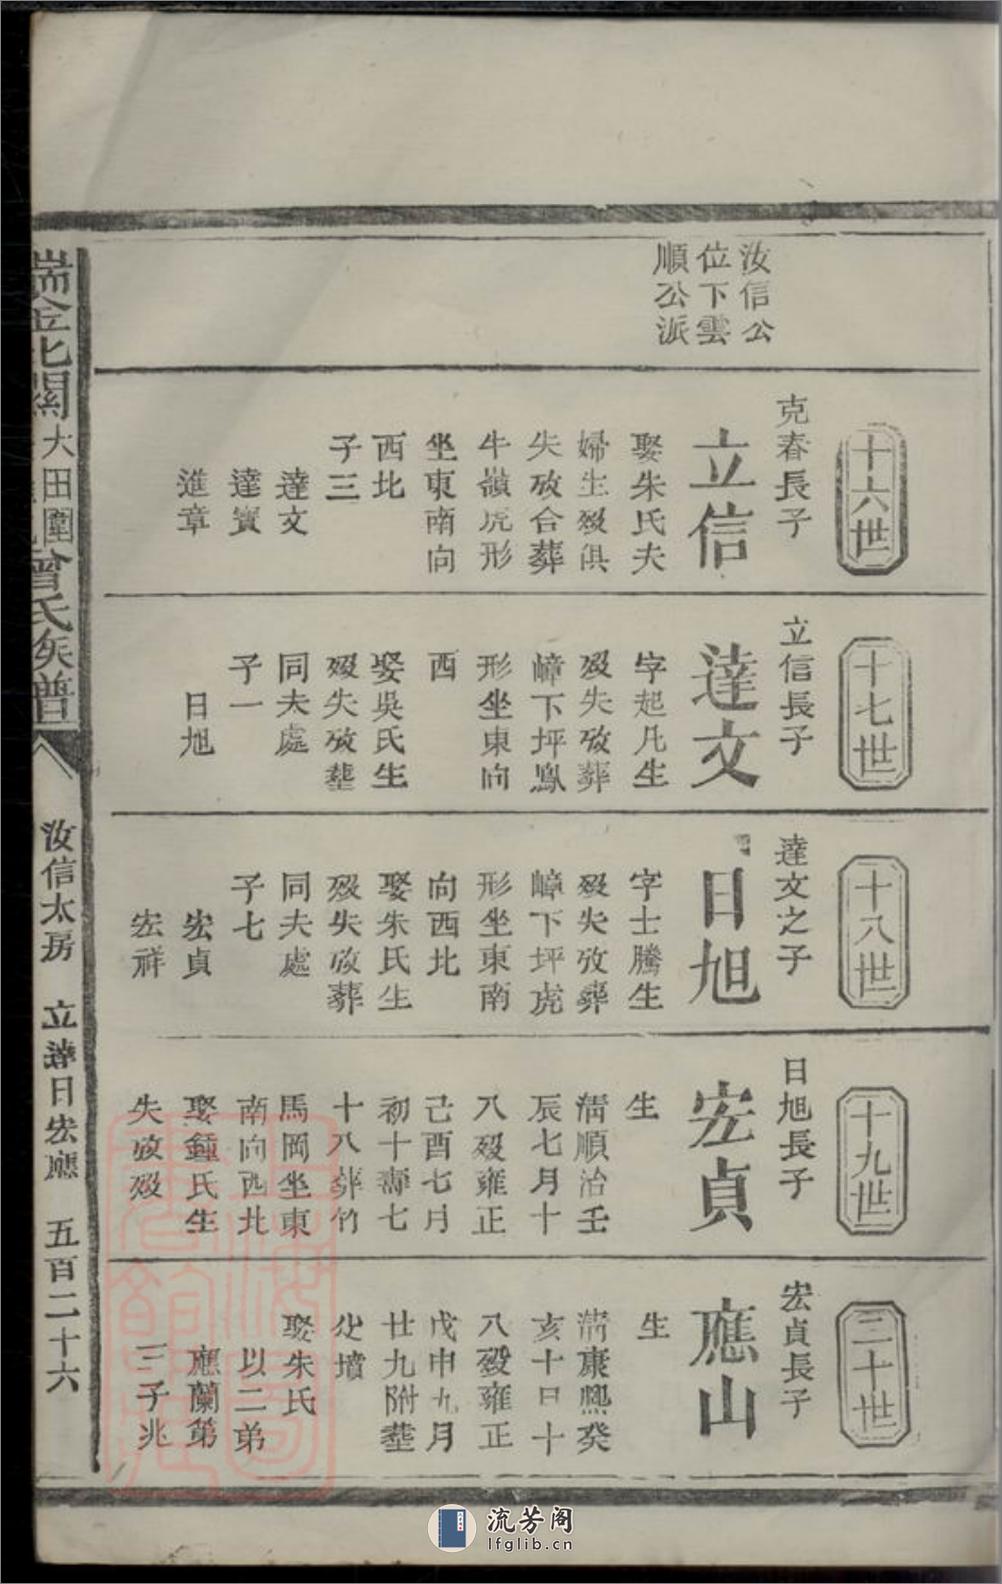 汝信公
位下雲
順公派
十六世
克春長子
立信
娶朱氏夫
婦生歿俱
失攷合葬
牛嶺虎形
坐東南向
西北
子三
達文
達寳
進章
十七世
立信長子
達文
字起凡生
歿失攷葬
嶂下坪鳳
形坐東向
西
娶吳氏生
歿失攷塟
同夫處
子一
日旭
十八世
達文之子
日旭
字士騰生
歿失攷葬
嶂下坪虎
形坐東南
向西北
娶朱氏生
歿失攷葬
同夫處
子七
宏貞
宏祥
十九世
日旭長子
宏貞
生
清順治壬
辰七月十
八歿雍正
己酉七月
初十壽七
十八葬竹
馬岡坐東
南向西北
娶鍾氏生
失攷歿
二十世
宏貞長子
應山
生
清康熙癸
亥十月十
八歿雍正
戊申九月
廿九附塟
父墳
娶朱氏
以二弟
應蘭第
三子兆
瑞金北關大田圍曾氏族譜
汝信太房 立達日宏應 五百二十六
流芳阁
lfglib.cn